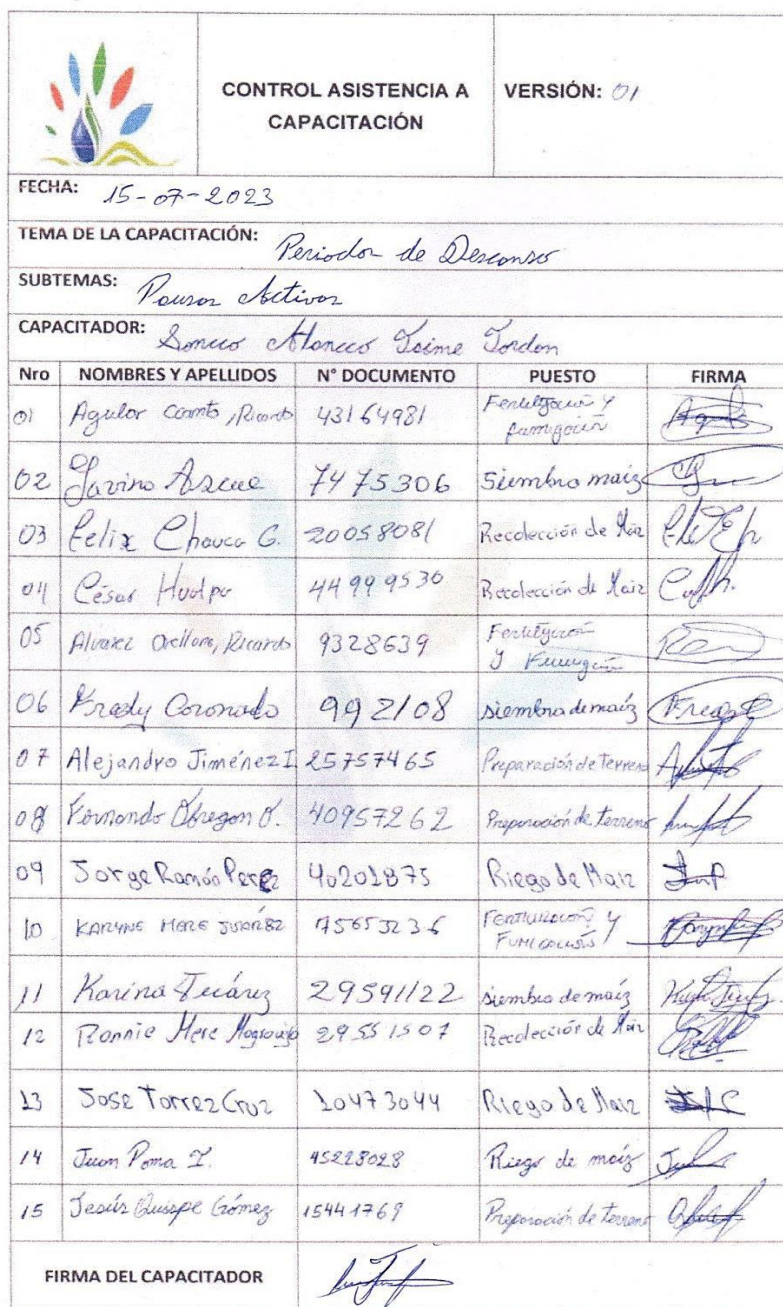 CONTROL ASISTENCIA A
CAPACITACIÓN
VERSIÓN: 01
FECHA: 15-07-2023
TEMA DE LA CAPACITACIÓN: Periodos de Descanso
SUBTEMAS: Pausas Activas
CAPACITADOR: Soncco Jaime Jordan
Nro NOMBRES Y APELLIDOS N° DOCUMENTO PUESTO FIRMA
01 Aguilar, Ricardo 43164981 Fertilización y
fumigación
02 Azcue 7475306 Siembra maíz
03 Felix Chauca G. 20058081 Recolección de Maíz
04 César Huallpa 44999530 Recolección de Maíz
05 Alvarez Orellana, Ricardo 9328639 Fertilización
y Fumigación
06 Fredy Coronado 992108 siembra de maíz
07 Alejandro Jiménez I. 25757465 Preparación de terreno
08 Fernando Obregon O. 40957262 Preparación de terreno
09 Jorge Ramos Perez 40201875 Riego de Maiz
10 KARYNE MERE JUAREZ FERTILIZACION Y
FUMIGACION
11 Karina Juárez 29591122 siembra de maíz
12 Ronnie Mere Mogrovejo 29551507 Recolección de Maíz
13 Jose Torrez Cruz 10473044 Riego de Maiz
14 Juan Poma I. 45228028 Riego de maíz
15 Jesús Quispe Gómez 15441769 Preparación de terreno
FIRMA DEL CAPACITADOR